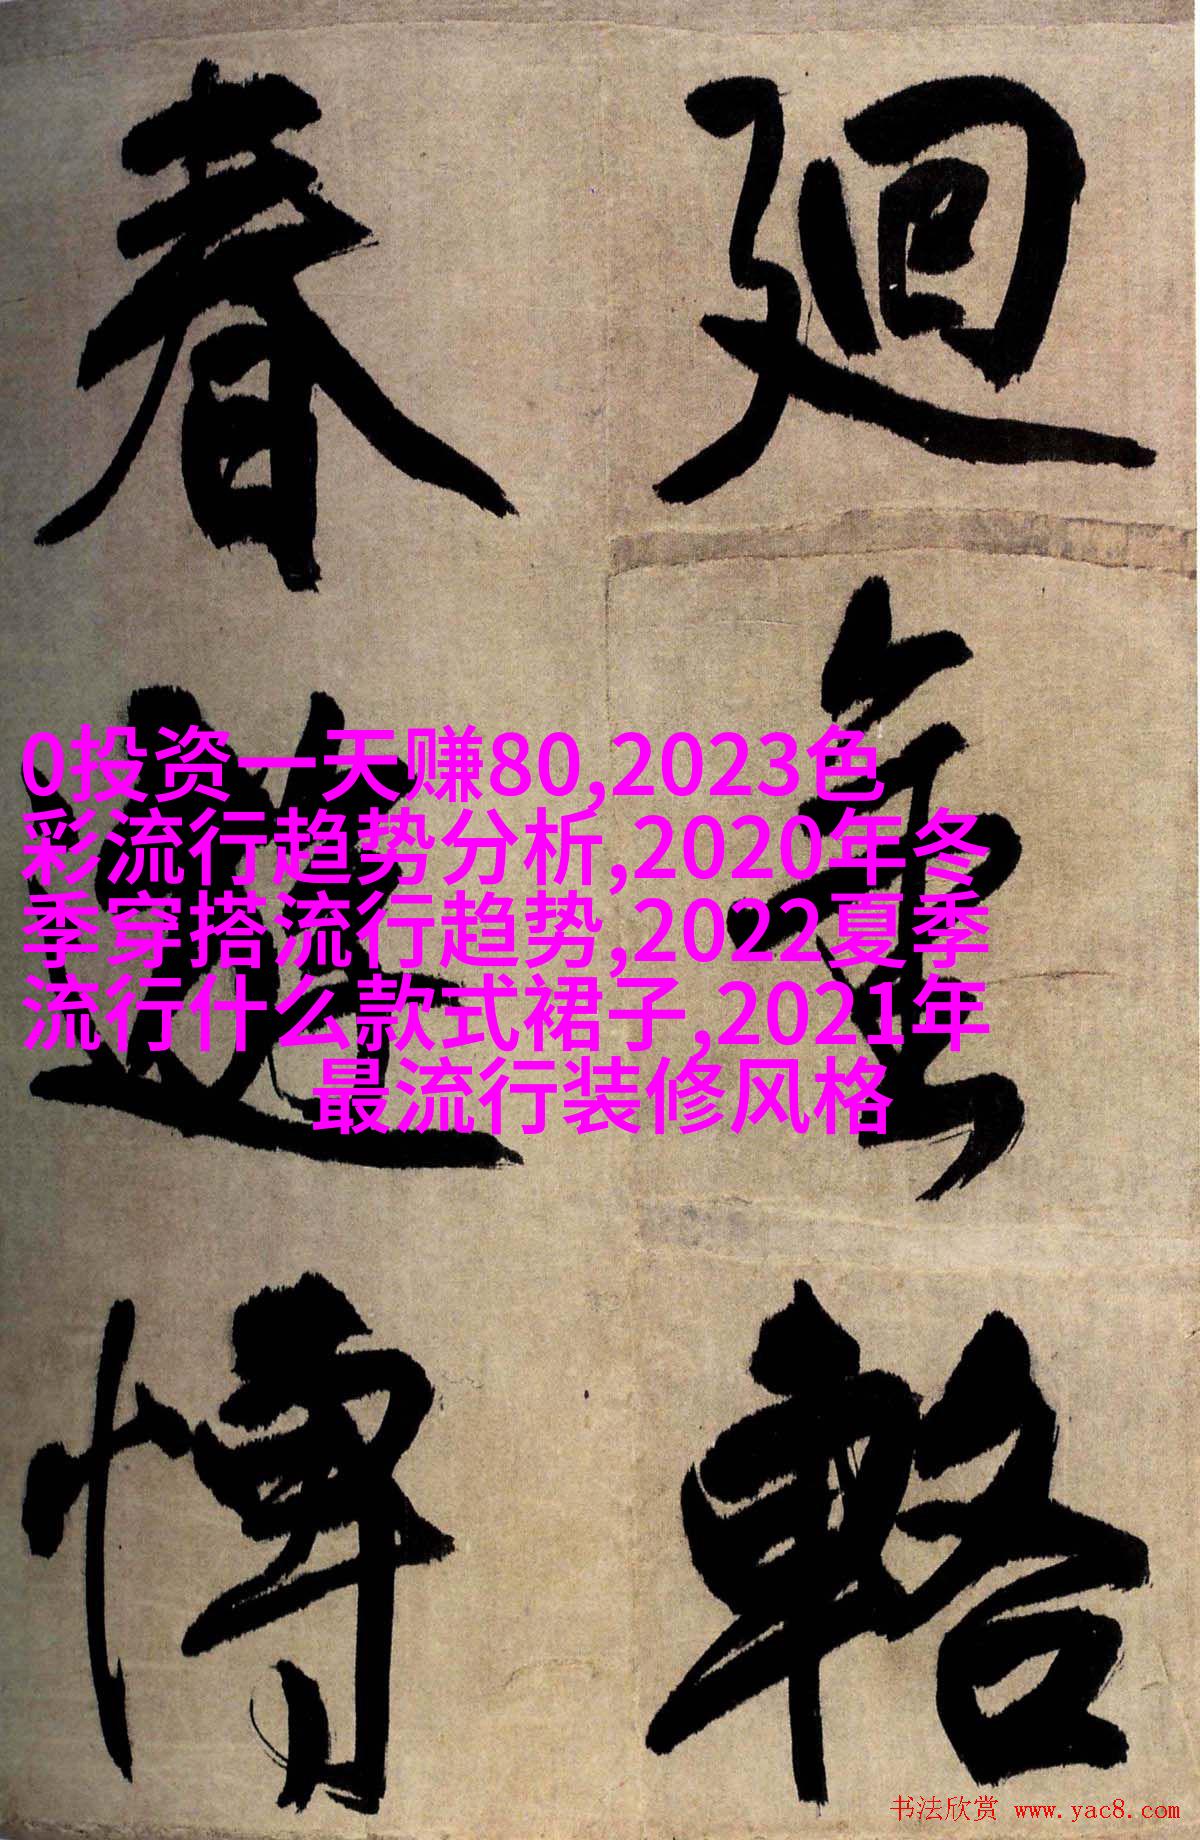 廻金輅
春
愽
0投资一天赚80,2023色
彩流行趋势分析,2020年冬
季穿搭流行趋势,2022夏季
流行什么款式裙子,2021年
最流行装修风格
书法欣赏 www.yac8.com